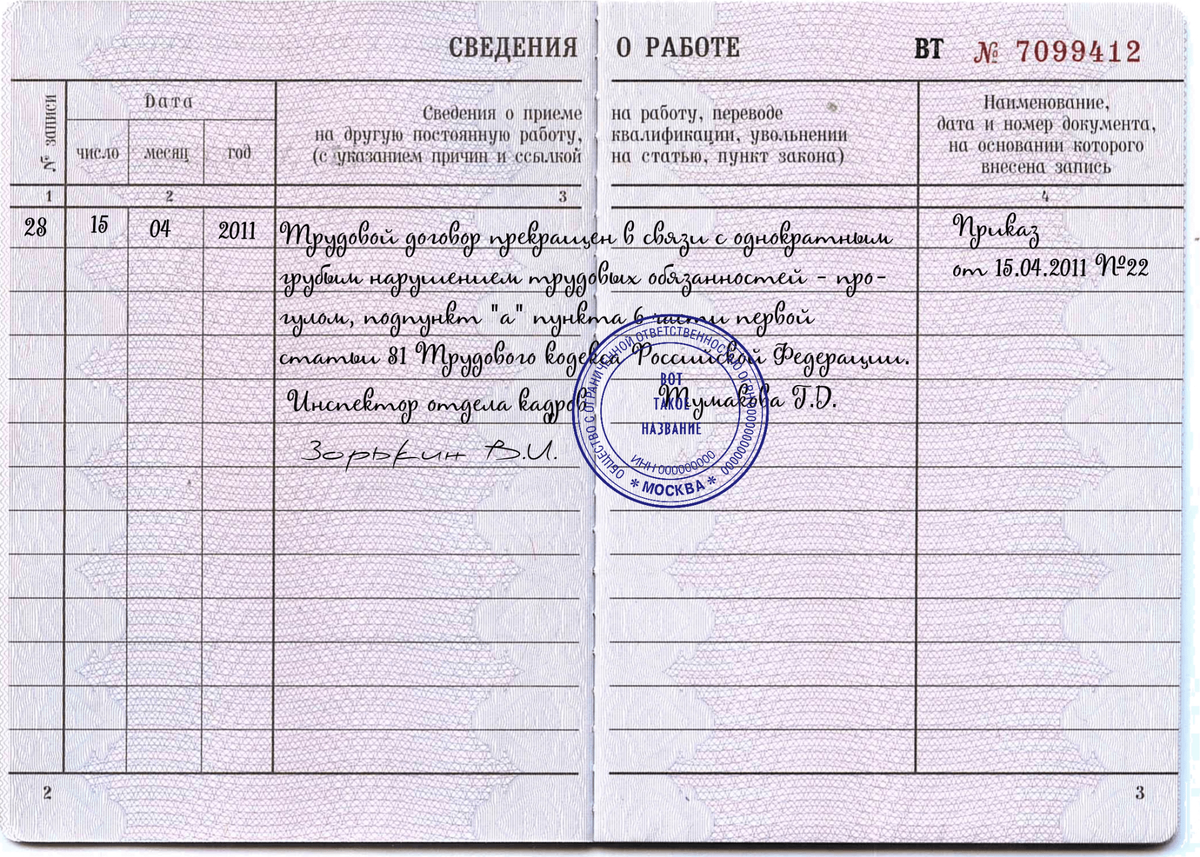 СВЕДЕНИЯ О РАБОТЕ ВТ № 7099412
№ записи
Дата
число месяц год
Сведения о приеме на работу, переводе
на другую постоянную работу, квалификации, увольнении
(с указанием причин и ссылкой на статью, пункт закона)
Наименование,
дата и номер документа,
на основании которого
внесена запись
1 2 3 4
23 15 04 2011 Трудовой договор прекращен в связи с однократным Приказ
грубым нарушением трудовых обязанностей - про- от 15.04.2011 №22
гулом, подпункт "а" пункта 6 части первой
статьи 81 Трудового кодекса Российской Федерации.
Инспектор отдела кадров Тумакова Г.D.
Зорькин В.И.
ОБЩЕСТВО С ОГРАНИЧЕННОЙ ОТВЕТСТВЕННОСТЬЮ ОГРН 0000000000000
ВОТ
ТАКОЕ
НАЗВАНИЕ
ИНН 000000000
* МОСКВА *
2 3